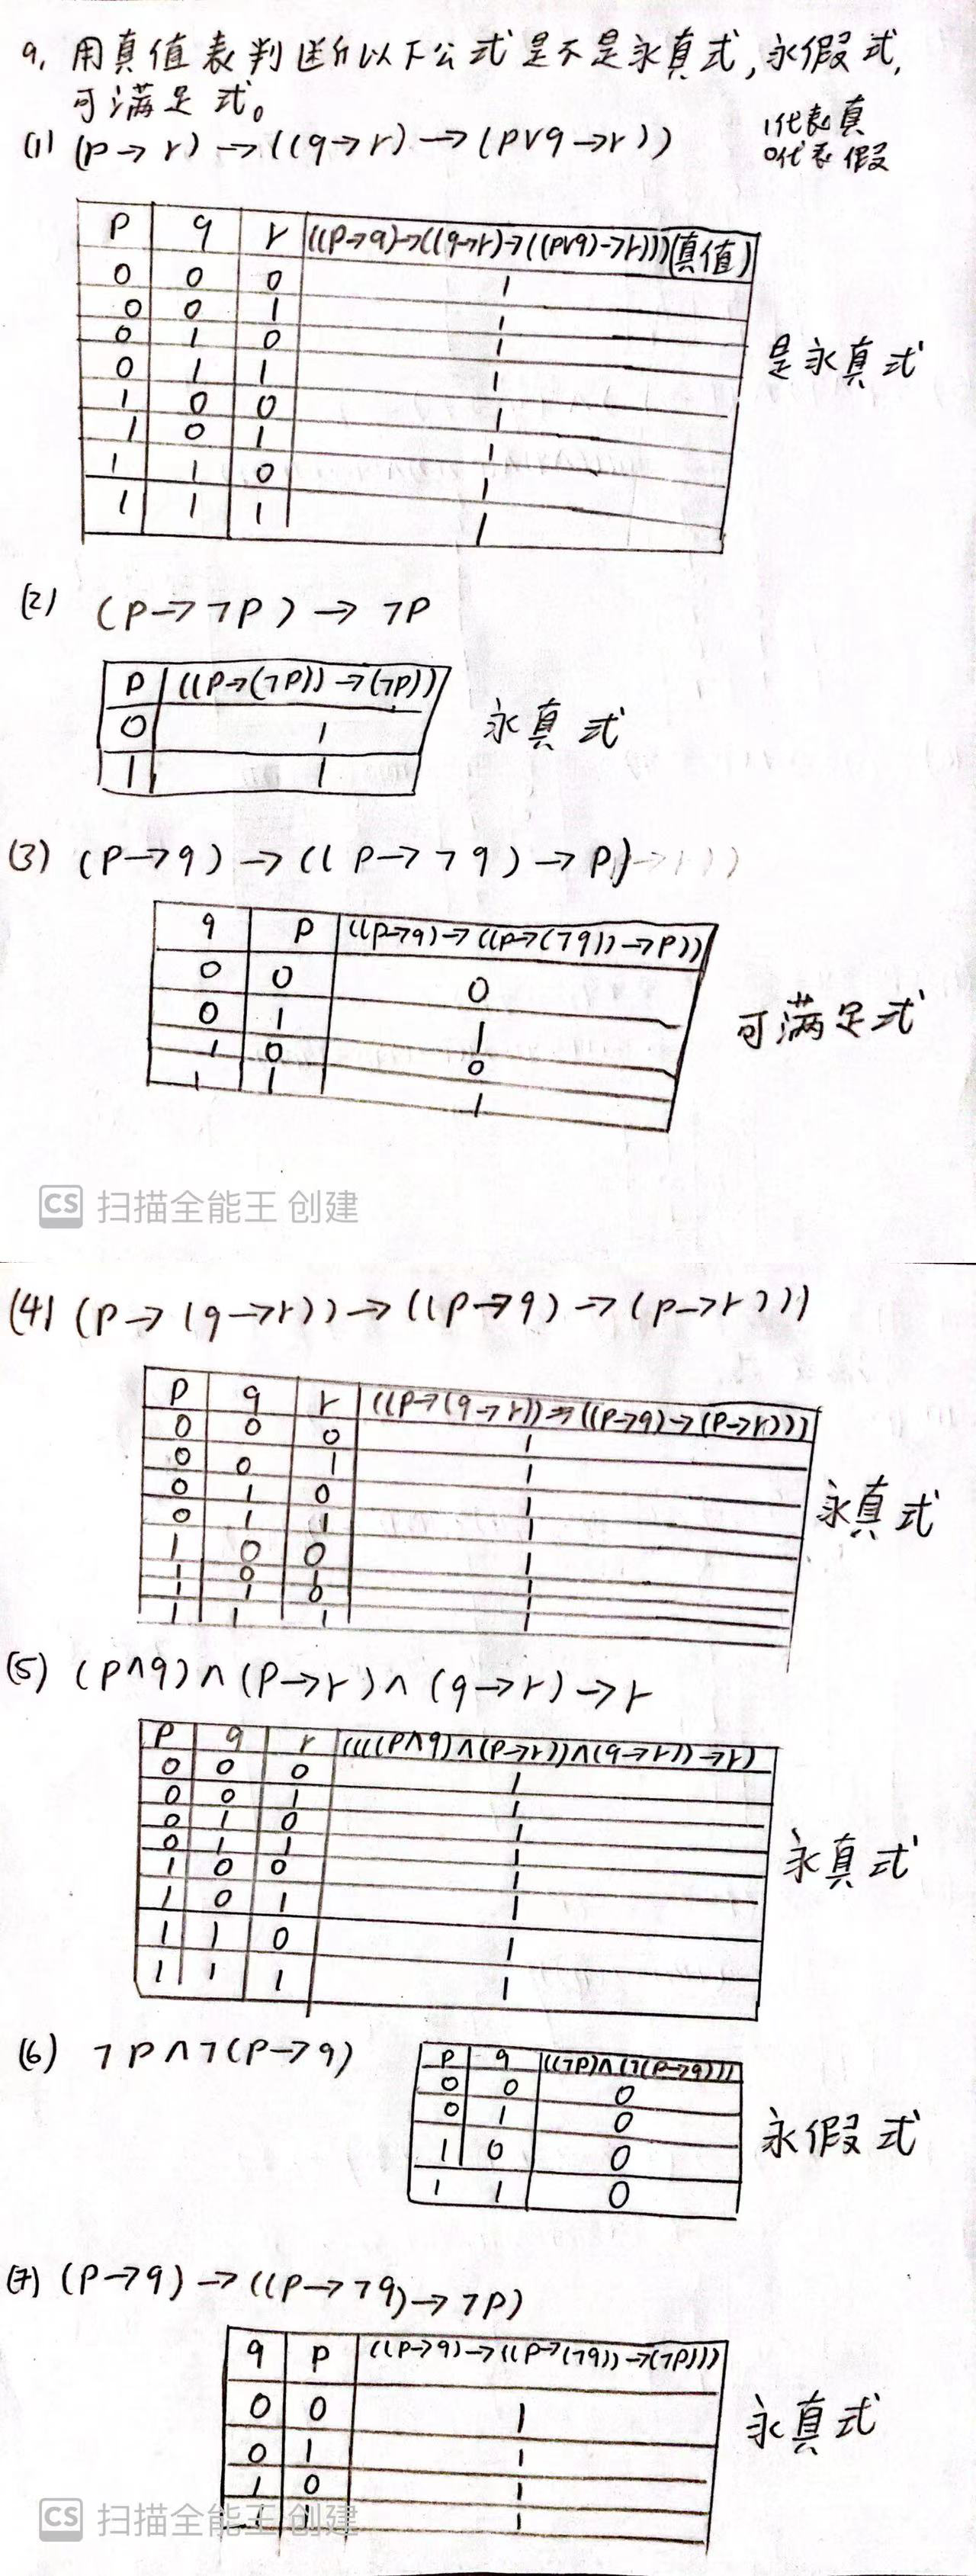 9. 用真值表判断以下公式是不是永真式,永假式,
可满足式。
1代表真
0代表假
(1) (p→r)→((q→r)→(p∨q→r))
p q r ((p→q)→((q→r)→((p∨q)→r)))(真值)
0 0 0 1
0 0 1 1
0 1 0 1
0 1 1 1
1 0 0 1
1 0 1 1
1 1 0 1
1 1 1 1
是永真式
(2) (p→¬p)→¬p
p ((p→(¬p))→(¬p))
0 1
1 1
永真式
(3) (p→q)→((p→¬q)→p)
q p ((p→q)→((p→(¬q))→p))
0 0 0
0 1 1
1 0 0
1 1 1
可满足式
CS 扫描全能王 创建
(4) (p→(q→r))→((p→q)→(p→r)))
p q r ((p→(q→r))→((p→q)→(p→r)))
0 0 0 1
0 0 1 1
0 1 0 1
0 1 1 1
1 0 0 1
1 0 1 1
1 1 0 1
1 1 1 1
永真式
(5) (p∧q)∧(p→r)∧(q→r)→r
p q r ((((p∧q)∧(p→r))∧(q→r))→r)
0 0 0 1
0 0 1 1
0 1 0 1
0 1 1 1
1 0 0 1
1 0 1 1
1 1 0 1
1 1 1 1
永真式
(6) ¬p∧¬(p→q)
p q ((¬p)∧(¬(p→q)))
0 0 0
0 1 0
1 0 0
1 1 0
永假式
(7) (p→q)→((p→¬q)→¬p)
q p ((p→q)→((p→(¬q))→(¬p)))
0 0 1
0 1 1
1 0 1
1 1 1
永真式
CS 扫描全能王 创建